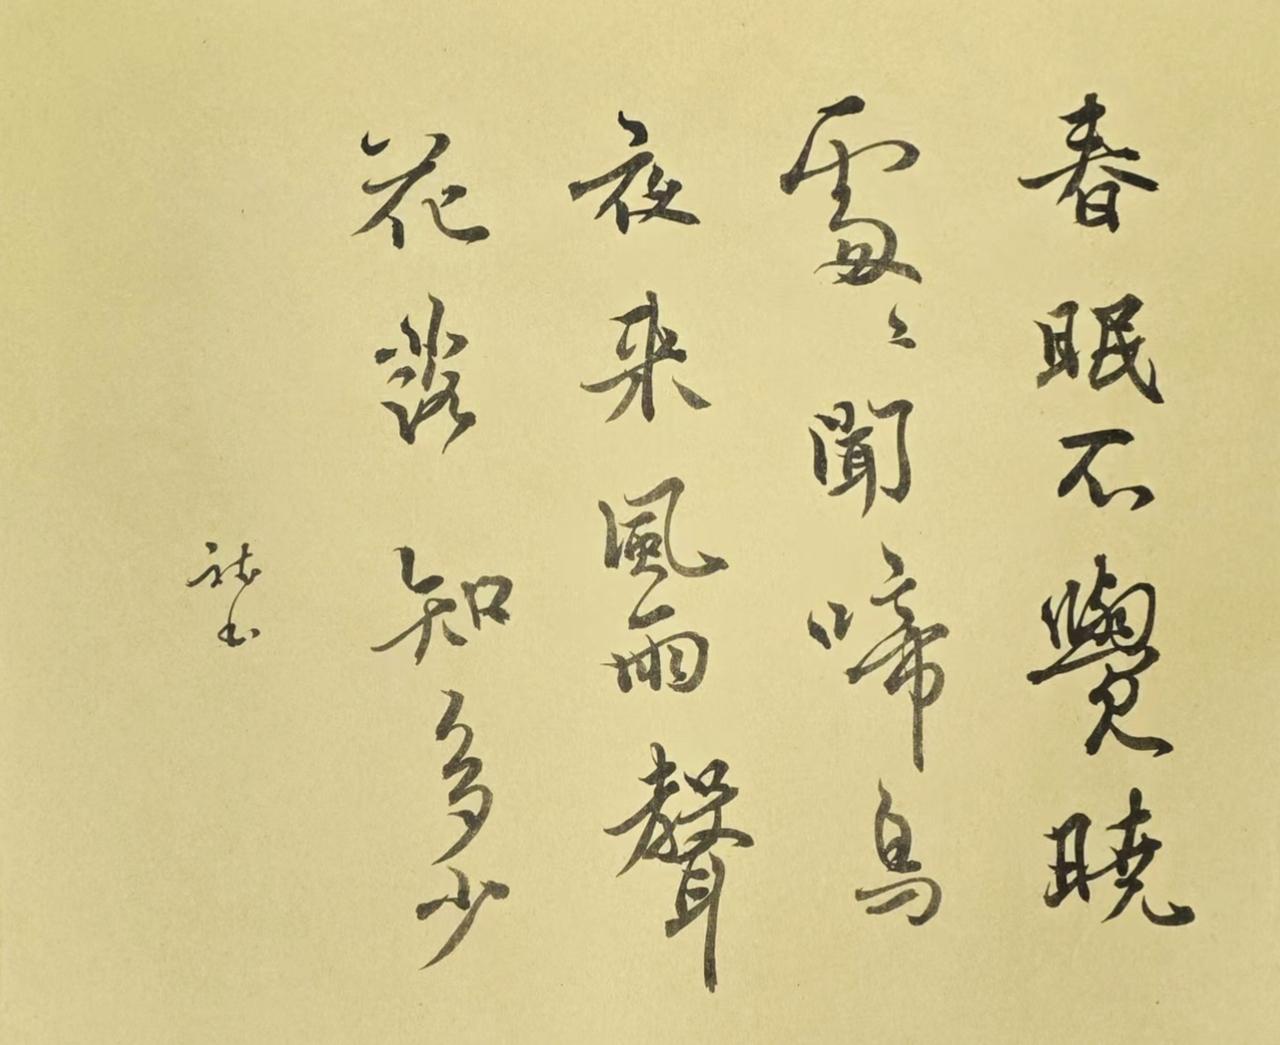 春眠不覺曉
處〻聞啼鳥
夜来風雨聲
花落知多少
书